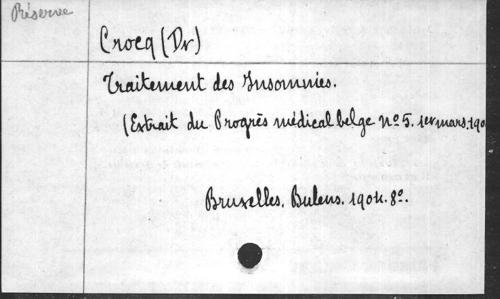 Réserve
Crocq (Dr)
Traitement des Insomnies.
(Extrait du Progrès médical belge nº 5. 1er mars. 190
Bruxelles. Bulens. 1904. 8º.